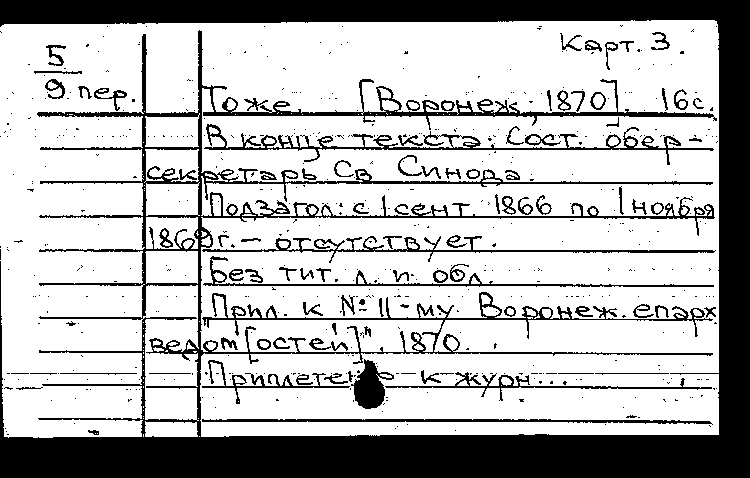 Карт. 3.
5
9 пер.
Тоже. [Воронеж, 1870]. 16 с.
В конце текста: Сост. обер-
секретарь Св. Синода.
Подзагол: с 1 сент. 1866 по 1 ноября
1869 г. - отсутствует.
Без тит. л. и обл.
Прил. к № 11-му "Воронеж. епарх
ведом[остей]". 1870.
Приплетено к журн...